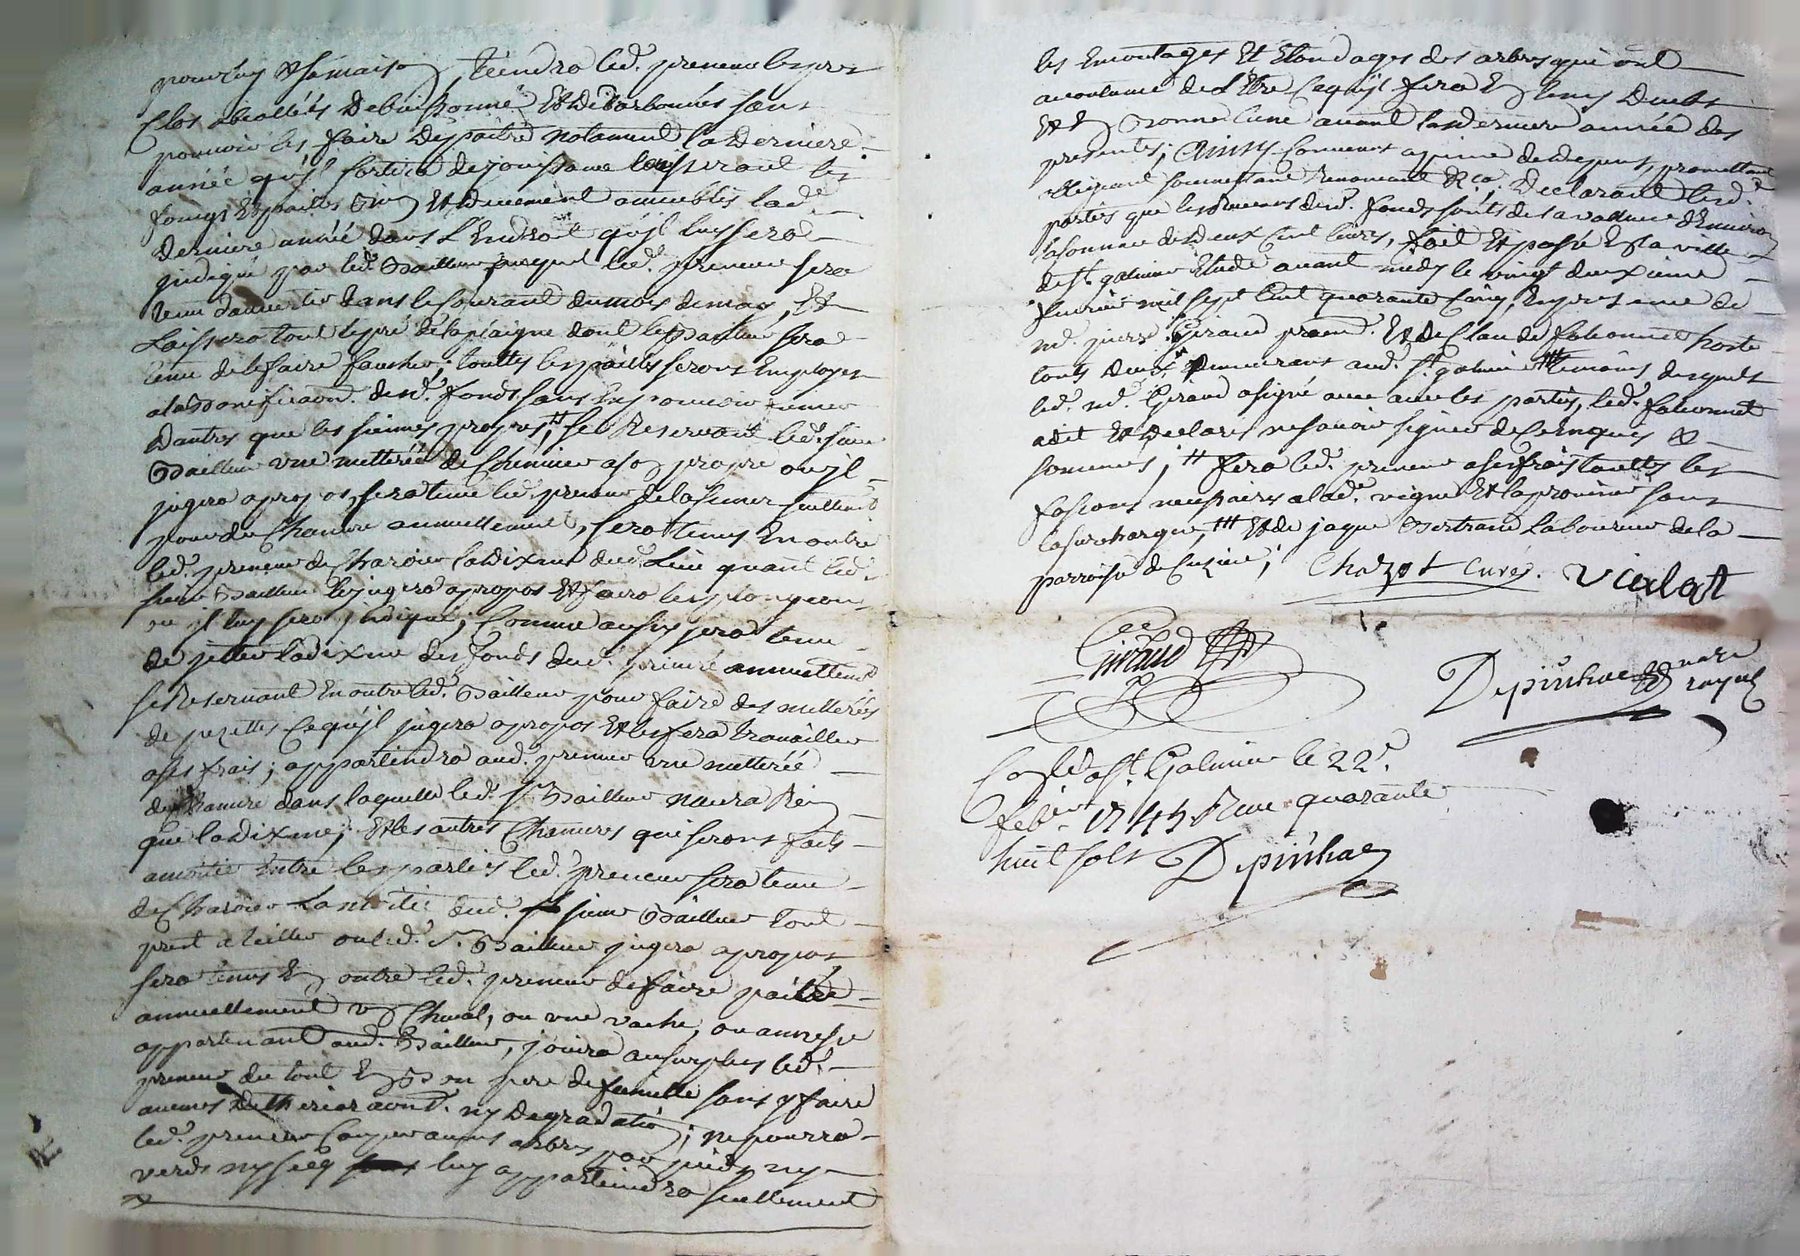 tiendra led. preneur les prés
clos
pouvoir les faire dépaitre notament la derniere
année qu'jl sortira de jouissance laisseront les
foings et pailles
derniere année dans L'Endroit qu'jl luy sera
jndiqué par led. Bailleur led. preneur sera
tenu dans le courant du mois de may, Et
Laissera tout le pré dont le Bailleur sera
tenu de le faire faucher; touttes les pailles seront Employes
desd. fonds sans En pouvoir
D'autres que les siennes propres, # se Reservant led. sieur
Bailleur une metterée de cheneviere a so propre ou jl
jugera apropos, sera tenu led. preneur de la semer seullemt
pour du Chanvre annuellement, sera tenu En outre
led. preneur de charoier la dixme dud. Lieu quant led.
sieur Bailleur le jugera apropos Et faire
ou jl luy sera jndiqué; Comme aussy sera tenu
de la dixme des fonds dud. annuellemt
se Reservant En outre led. Bailleur pour faire des metterées
de Ce qu'jl jugera apropos Et les fera travailler
a ses frais; appartiendra aud. preneur une metterée
de chanvre dans laquelle led. sr Bailleur n'aura Rien
que la dixme; Et les autres Chanvres qui seront faits
a moitié Entre les parties led. preneur sera tenu
de Charoier La moitié dud. sieur Bailleur tout
prest a teiller ou led. sr. Bailleur jugera apropos
sera tenu En outre led. preneur de faire paitre
annuellement un Cheval, ou une vache, ou annesse
appartenant aud. Bailleur, jouira au surplus led.
preneur du tout En Bon pere de famille sans y faire
aucunes ny Degradatio; ne pourra
led. preneur Couper aucuns arbres par pied, ny
verds ny secq luy appartiendra seullement
les Emontages Et Elondages des arbres qui ont
accoutumé de L'Etre Ce qu'jl fera En tems Deubs
Et avant la derniere année des
presentes; Ainsy Convenu a peine de depens, promettant
obligeant soumettant Renonceant &ca. Declarant lesd.
parties que les Revenus desd. fonds sont de la valleur d'Environ
la somme de Deux Cent livres, fait Et passé En la ville
de st. galmier Etude avant midy le vingt deuxieme
fevrier mil sept Cent quarante Cinq, En presence de
me. pierre Giraud pratn. Et de Claude falconnet hoste
tous deux Demeurant aud. st. galmier # temoins desquels
led. me. Giraud a signé avec les parties, led. falconnet
a dit Et Declaré ne savoir signer de Ce Enquis &
sommés; # fera led. preneur a ses frais touttes les
façons necessaires a lad. vigne Et la provigner sans
la surcharger, # Et de jaque Bertrand Laboureur de la
parroisse de Cuzieu;
Chazot Curé. Vialat
Giraud
Depinhac nore royal
Conlé a st. Galmier le 22e.
febrier 1745 Reçu quarante
huit sols Depinhac